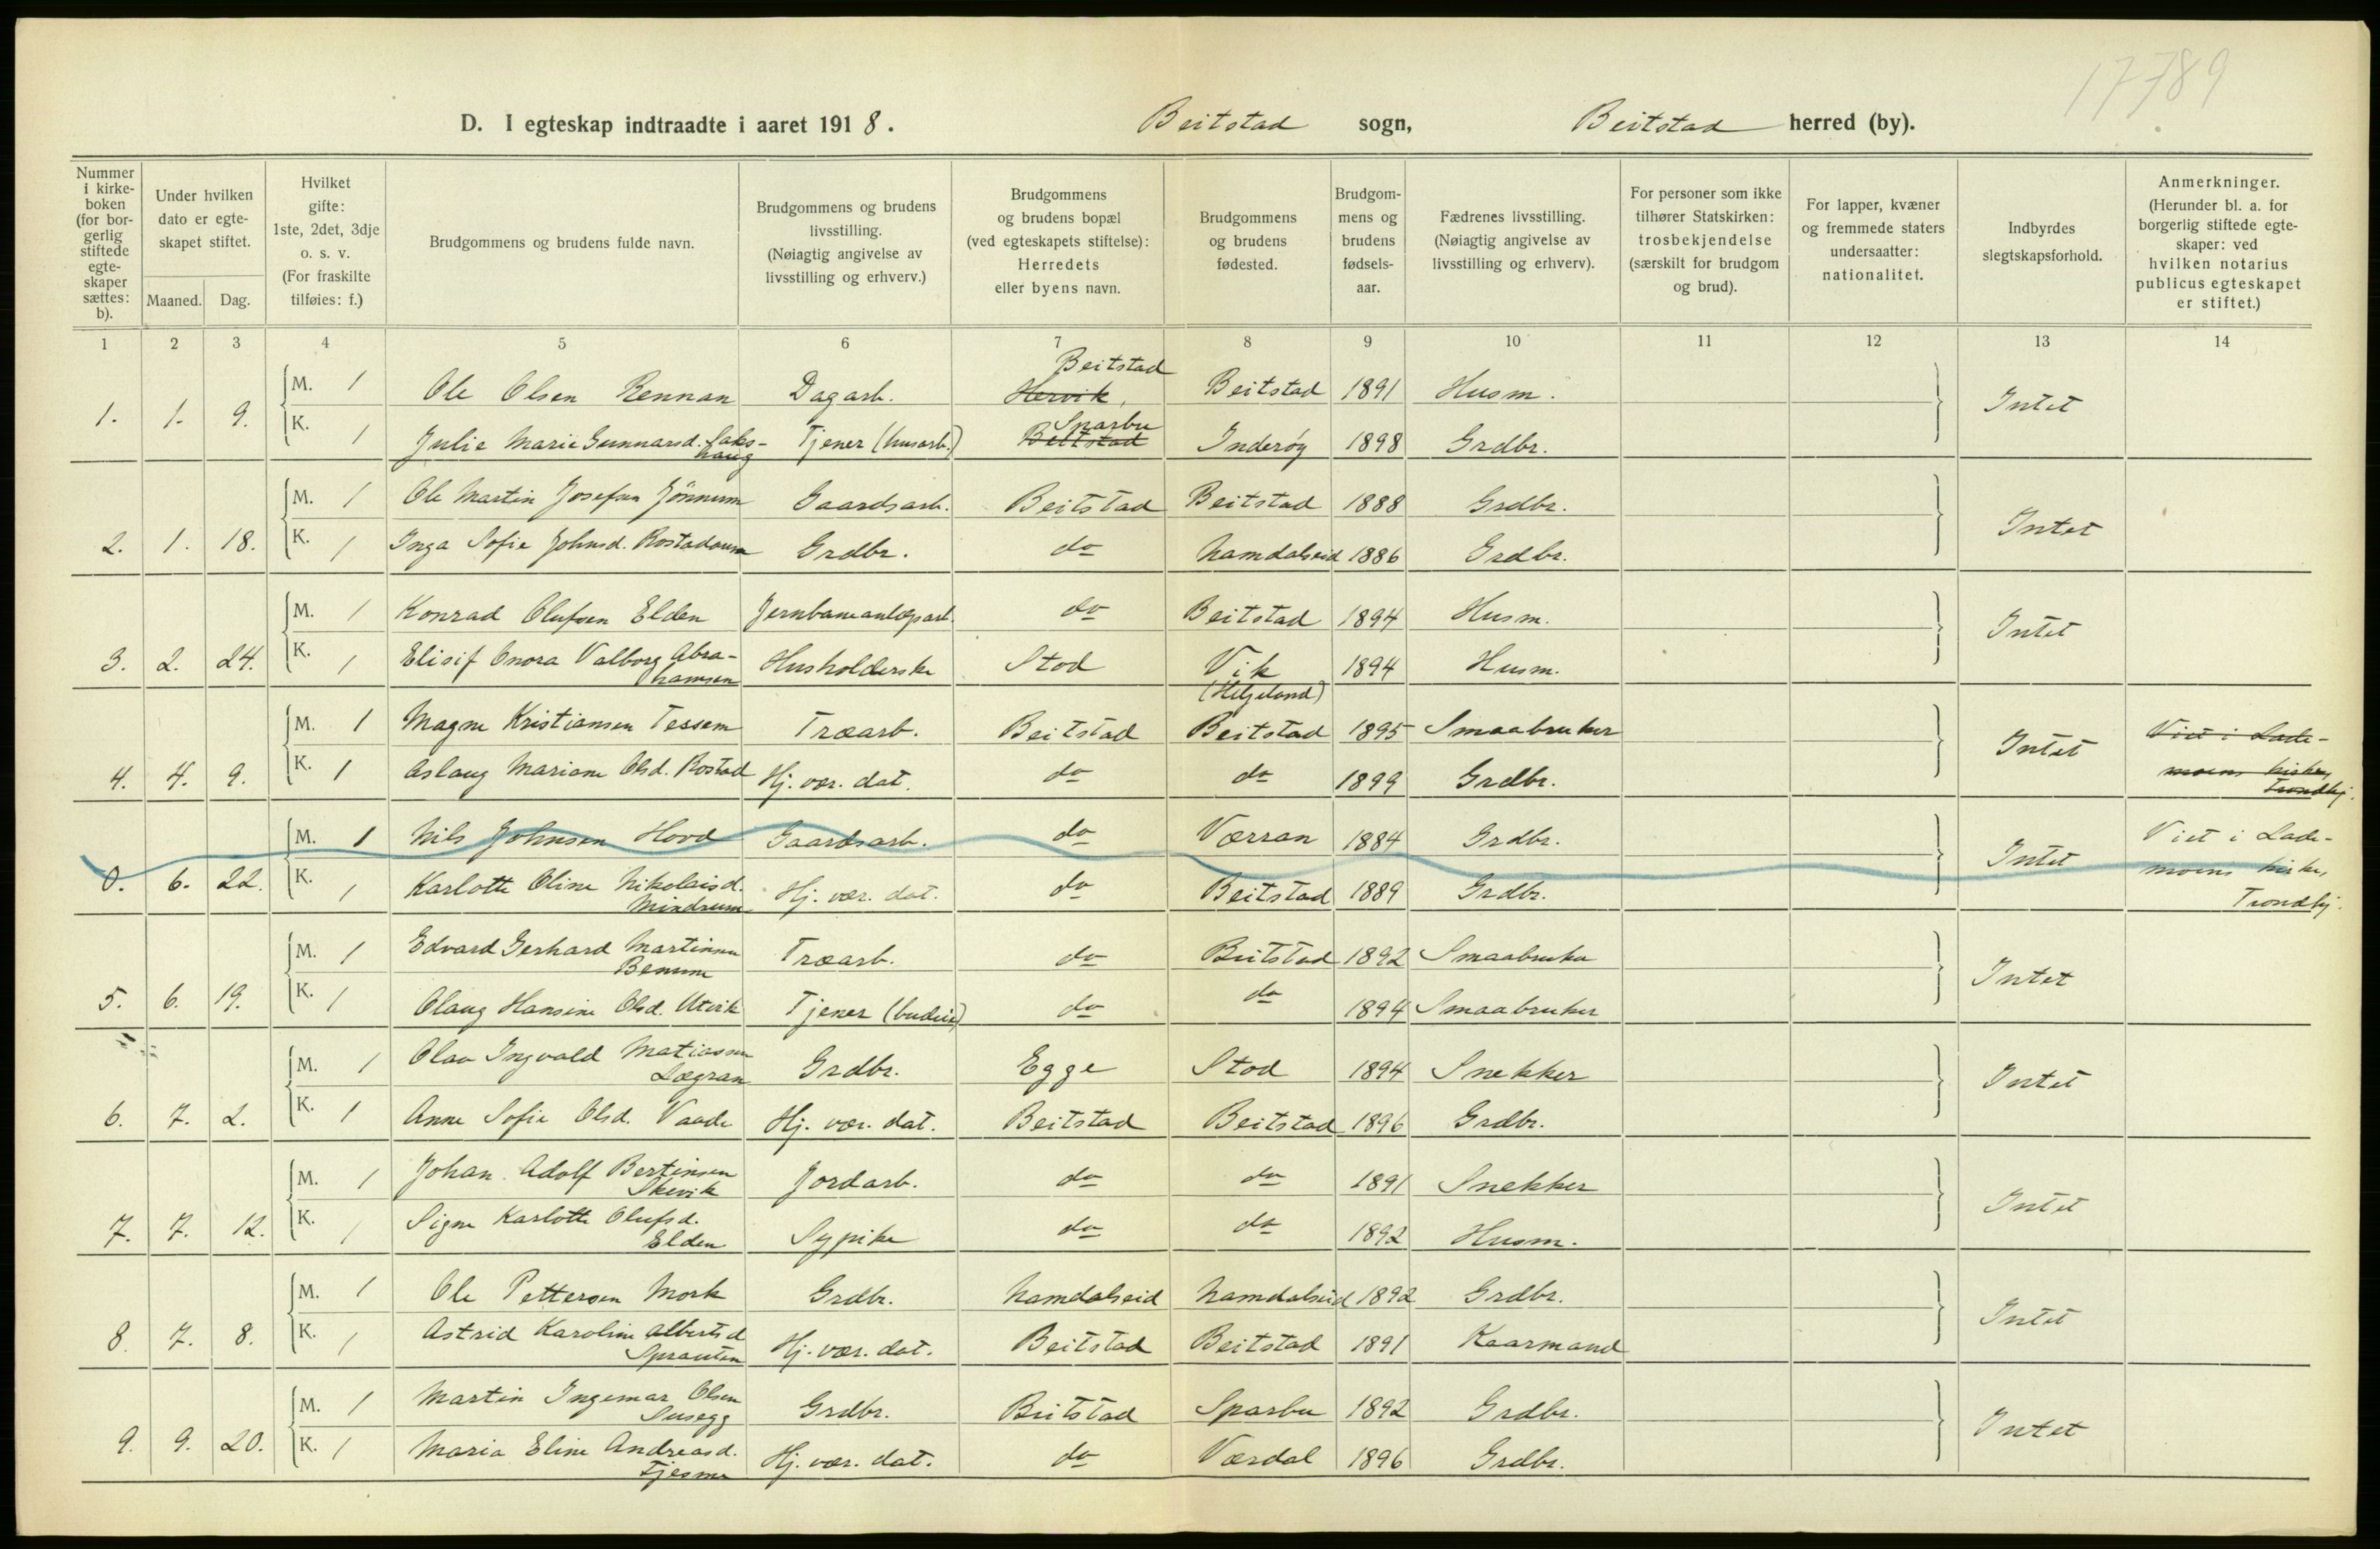 17789
D. I egteskap indtraadte i aaret 1918. Beitstad sogn, Beitstad herred (by).
Nummer i kirke-boken (for bor-gerlig stiftede egte-skaper sættes: b).
Under hvilken dato er egte-skapet stiftet.
Maaned. Dag.
Hvilket gifte: 1ste, 2det, 3dje o. s. v. (For fraskilte tilføies: f.)
Brudgommens og brudens fulde navn.
Brudgommens og brudens livsstilling. (Nøiagtig angivelse av livsstilling og erhverv.)
Brudgommens og brudens bopæl (ved egteskapets stiftelse): Herredets eller byens navn.
Brudgommens og brudens fødested.
Brudgom-mens og brudens fødsels-aar.
Fædrenes livsstilling. (Nøiagtig angivelse av livsstilling og erhverv).
For personer som ikke tilhører Statskirken: trosbekjendelse (særskilt for brudgom og brud).
For lapper, kvæner og fremmede staters undersaatter: nationalitet.
Indbyrdes slegtskapsforhold.
Anmerkninger. (Herunder bl. a. for borgerlig stiftede egte-skaper: ved hvilken notarius publicus egteskapet er stiftet.)
1 2 3 4 5 6 7 8 9 10 11 12 13 14
M. 1 Ole Olsen Rennan Dagarb. Hervik, Beitstad Beitstad 1891 Husm.
1. 1. 9. K. 1 Julie Marie Gunnarsd. Saks-haug Tjener (husarb.) Beitstad Sparbu Inderøy 1898 Grdbr. Intet
M. 1 Ole Martin Josefsen Jönnum Gaardsarb. Beitstad Beitstad 1888 Grdbr.
2. 1. 18. K. 1 Inga Sofie Johnsd. Rostadaunn Grdbr. do Namdalseid 1886 Grdbr. Intet
M. 1 Konrad Olufsen Elden Jernbaneanlægsarb. do Beitstad 1894 Husm.
3. 2. 24. K. 1 Elisif Onora Valborg Abra-hamsen Husholderske Stod Vik (Helgeland) 1894 Husm. Intet
M. 1 Magne Kristiansen Tessem Træarb. Beitstad Beitstad 1895 Smaabruker
4. 4. 9. K. 1 Aslaug Mariane Olsd. Rostad Hj. vær. dat. do do 1899 Grdbr. Intet Viet i Lade-moens kirke, Trondhj.
M. 1 Nils Johnsen Hovd Gaardsarb. do Værran 1884 Grdbr.
0. 6. 22. K. 1 Karlotte Oline Nikolaisd. Mindrum Hj. vær. dat. do Beitstad 1889 Grdbr. Intet Viet i Lade-moens kirke, Trondhj.
M. 1 Edvard Gerhard Martinsen Benum Træarb. do Beitstad 1892 Smaabruker
5. 6. 19. K. 1 Olaug Hansine Olsd. Utvik Tjener (budeie) do do 1894 Smaabruker Intet
M. 1 Olav Ingvald Matiassen Lægran Grdbr. Egge Stod 1894 Snekker
6. 7. 2. K. 1 Anne Sofie Olsd. Vaade Hj. vær. dat. Beitstad Beitstad 1896 Grdbr. Intet
M. 1 Johan Adolf Bertinsen Skevik Jordarb. do do 1891 Snekker
7. 7. 12. K. 1 Signe Karlotte Olufsd. Elden Sypike do do 1892 Husm. Intet
M. 1 Ole Pettersen Mork Grdbr. Namdalseid Namdalseid 1892 Grdbr.
8. 7. 8. K. 1 Astrid Karoline Albertsd Sprauten Hj. vær. dat. Beitstad Beitstad 1891 Kaarmand Intet
M. 1 Martin Ingemar Olsen Susegg Grdbr. Beitstad Sparbu 1892 Grdbr.
9. 9. 20. K. 1 Maria Eline Andreasd. Tjesme Hj. vær. dat. do Værdal 1896 Grdbr. Intet